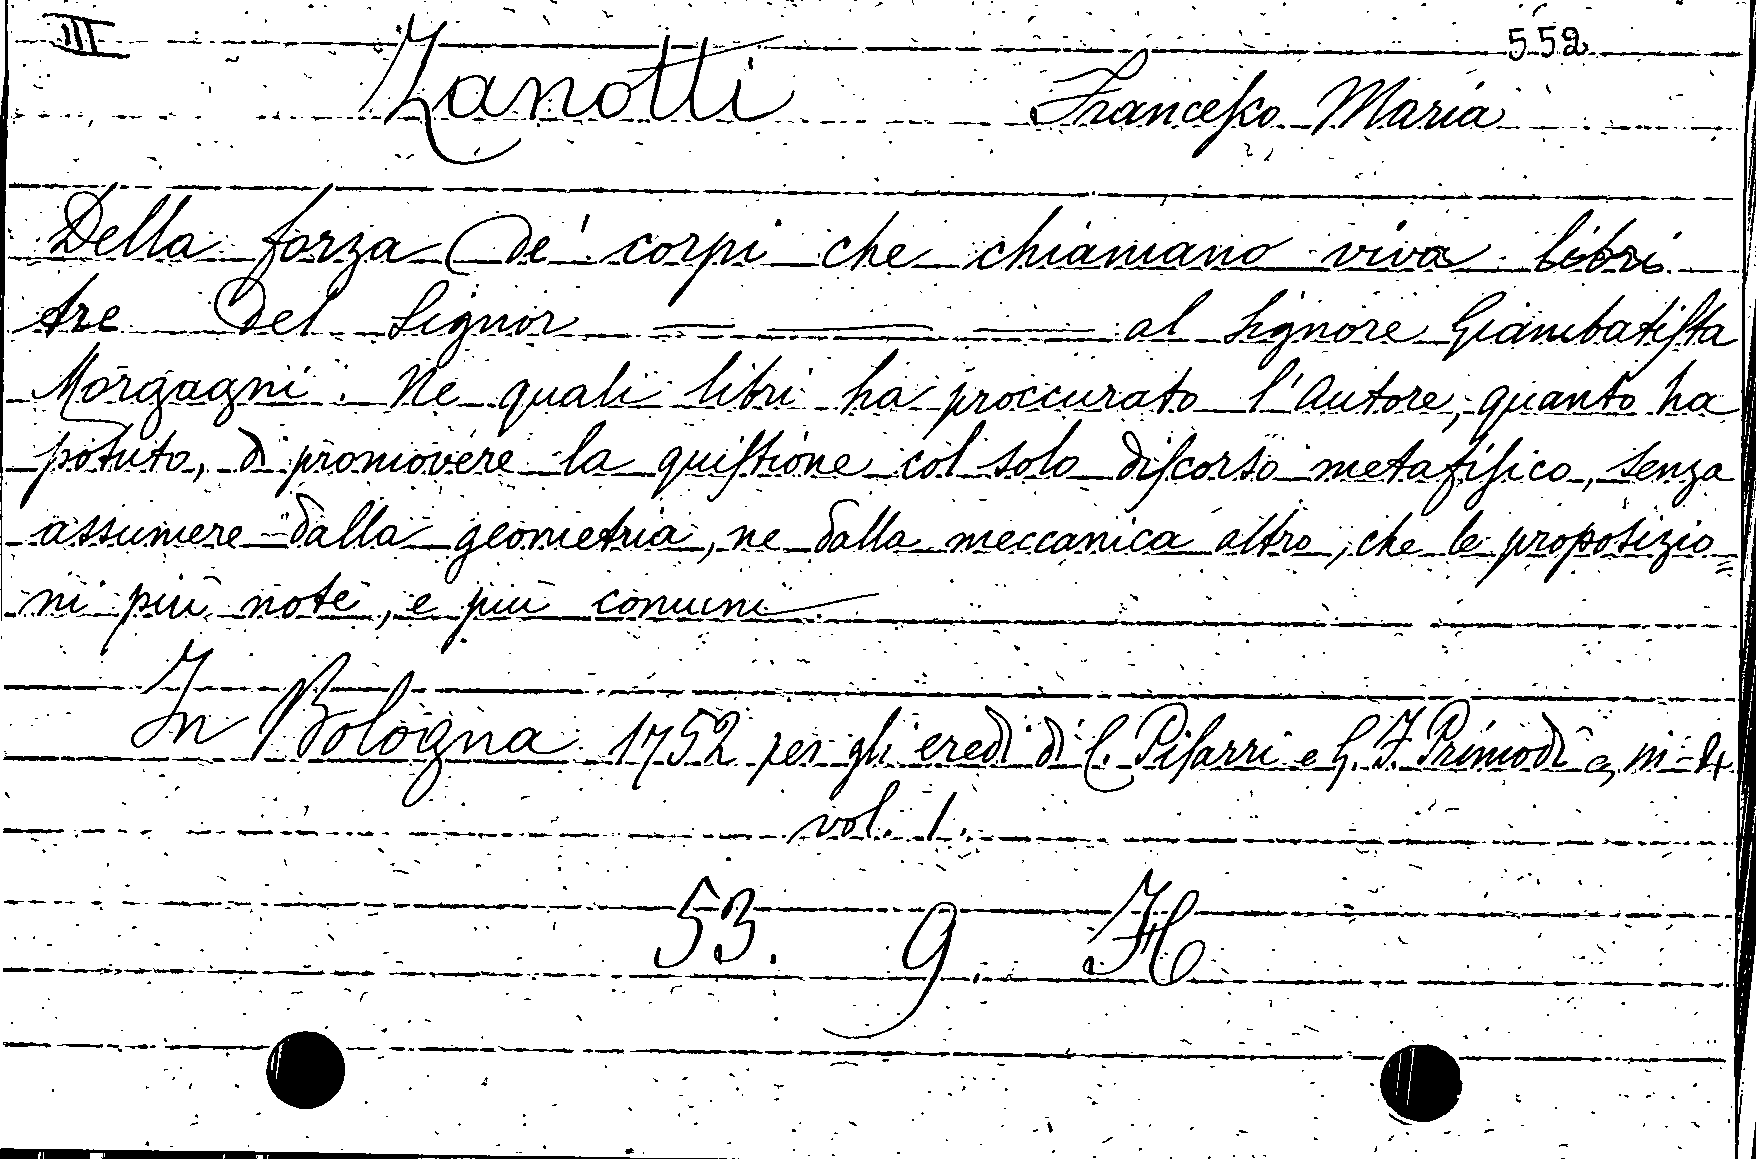 III 552
Zanotti Francesco Maria
Della forza de' corpi che chiamano viva libri
tre del Signor — — — al Signore Giambatista
Morgagni. Ne quali libri ha proccurato l'Autore, quanto ha
potuto, di promovere la quistione col solo discorso metafisico, senza
assumere dalla geometria, ne dalla meccanica altro, che le proposizio=
ni più note, e più comuni.
In Bologna 1752 per gli eredi di C. Pisarri e G. F. Primodì in-4
vol. 1.
53. 9. H